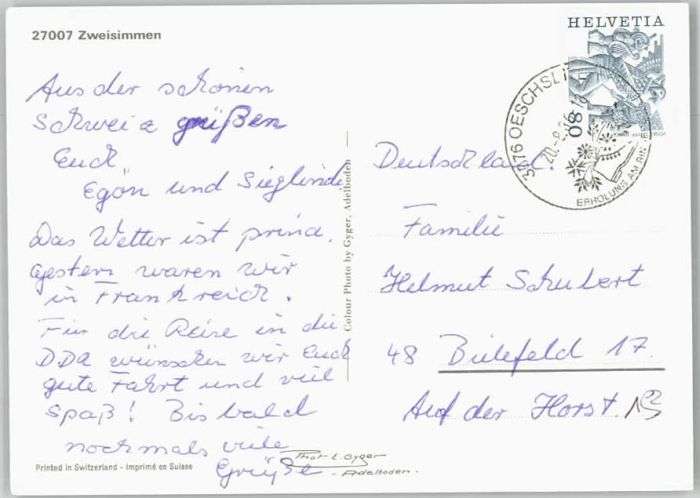 27007 Zweisimmen
Aus der schönen
Schweiz grüßen
Euch
Egon und Sieglinde
Das Wetter ist prima.
gestern waren wir
in Frankreich.
Für die Reise in die
DDR wünschen wir Euch
gute Fahrt und viel
Spaß! Bis bald
nochmals viele
Grüße
Printed in Switzerland - Imprimé en Suisse
Phot. E. Gyger
- Adelboden -
Colour Photo by Gyger, Adelboden
HELVETIA
80
OESCHS
ERHOLUNG AM
Deutschland
Familie
Helmut Schubert
48 Bielefeld 17.
Auf der Horst.